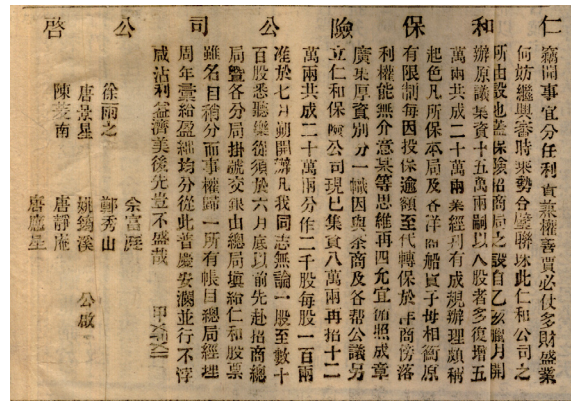 仁和保險公司公啓
竊聞事宜分任利貴兼權善賈必仗多財盛業
何妨繼興審時乘勢合璧聯珠此仁和公司之
所由設也蓋保險招商局之設自乙亥臘月開
辦原議集資十五萬兩嗣以入股者多復增五
萬兩共成二十萬兩業經刊有成規辦理頗稱
起色凡所保本局及各洋商船貨子母相銜原
有限制每因投保逾額至代轉保於洋商傍落
利權能無介意某等思維再四允宜循照成章
廣集厚資別分一幟因與茶商及各幫公議另
立仁和保險公司現已集資八萬兩再招十二
萬兩共成二十萬兩分作二千股每股一百兩
准於七月朔開辦凡我同志無論一股至數十
百股悉聽樂從須於六月底以前先赴招商總
局暨各分局掛號交銀由總局填給仁和股票
雖名目稍分而事權歸一所有帳目總局經理
周年彙結盈絀均分從此普慶安瀾並行不悖
咸沾利益濟美後先豈不盛哉
余富庭
徐雨之 鄭秀山
唐景星 姚筠溪 公啟
陳菱南 唐靜庵
唐應星